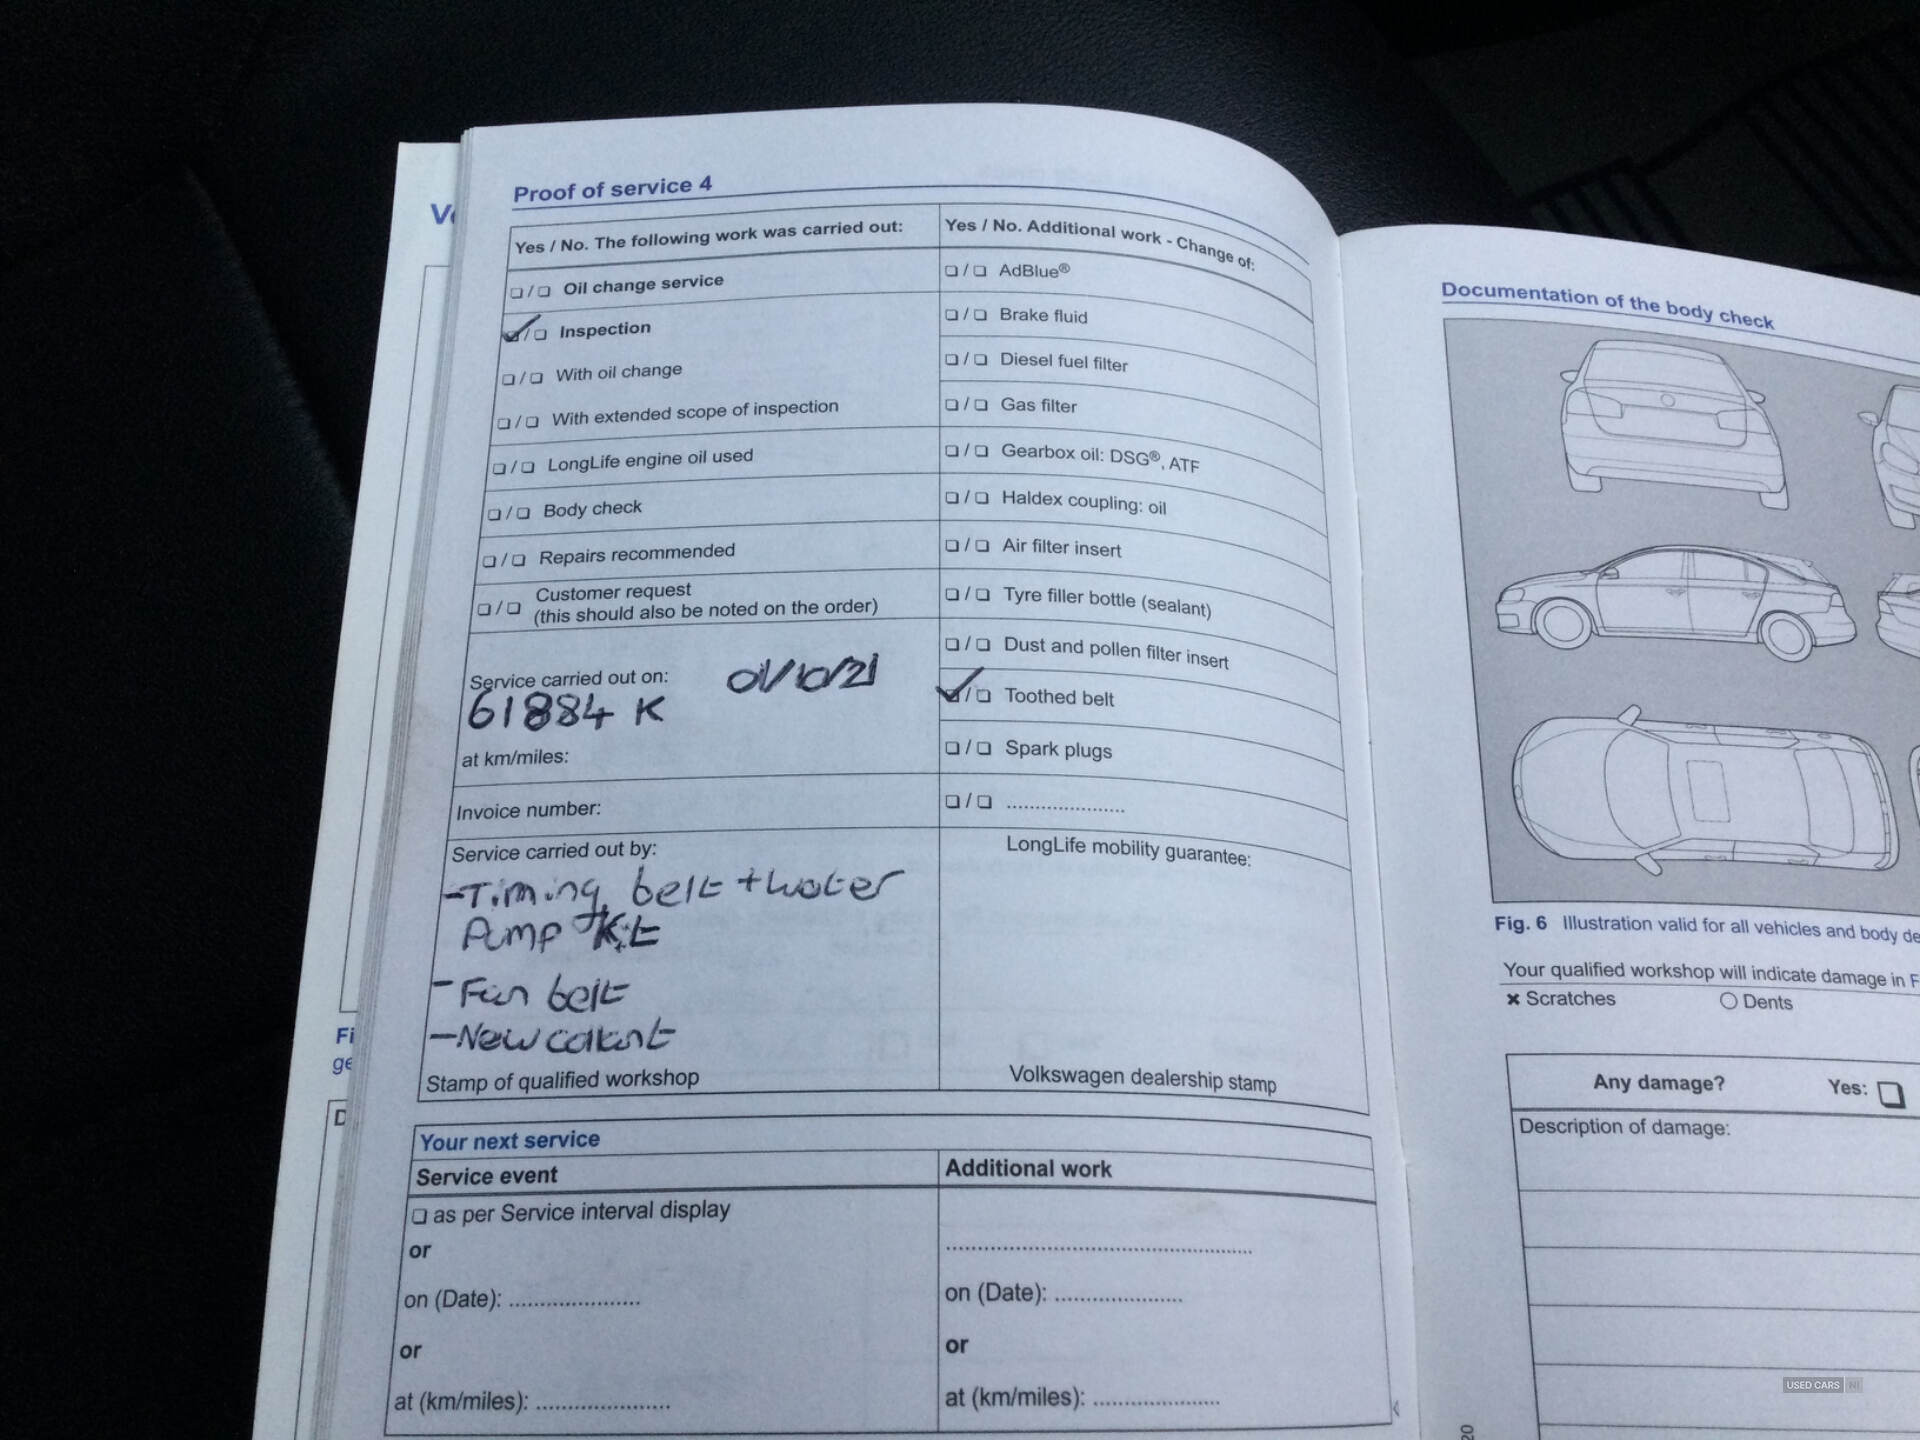 Proof of service 4
Yes / No. The following work was carried out:
❏ / ❏ Oil change service
✓ / ❏ Inspection
❏ / ❏ With oil change
❏ / ❏ With extended scope of inspection
❏ / ❏ LongLife engine oil used
❏ / ❏ Body check
❏ / ❏ Repairs recommended
❏ / ❏ Customer request
(this should also be noted on the order)
Service carried out on: 01/10/21
61884 K
at km/miles:
Invoice number:
Service carried out by:
- Timing belt + water
Pump Kit
- Fan belt
- New
Stamp of qualified workshop
Yes / No. Additional work - Change of:
❏ / ❏ AdBlue®
❏ / ❏ Brake fluid
❏ / ❏ Diesel fuel filter
❏ / ❏ Gas filter
❏ / ❏ Gearbox oil: DSG®, ATF
❏ / ❏ Haldex coupling: oil
❏ / ❏ Air filter insert
❏ / ❏ Tyre filler bottle (sealant)
❏ / ❏ Dust and pollen filter insert
✓ / ❏ Toothed belt
❏ / ❏ Spark plugs
❏ / ❏ .....................
LongLife mobility guarantee:
Volkswagen dealership stamp
Your next service
Service event
❏ as per Service interval display
or
on (Date): ......................
or
at (km/miles): ......................
Additional work
......................................................
on (Date): ......................
or
at (km/miles): ......................
Documentation of the body check
Fig. 6 Illustration valid for all vehicles and body de
Your qualified workshop will indicate damage in F
✖ Scratches
○ Dents
Any damage? Yes: ❏
Description of damage:
Fi
ge
D
20
USED CARS NI